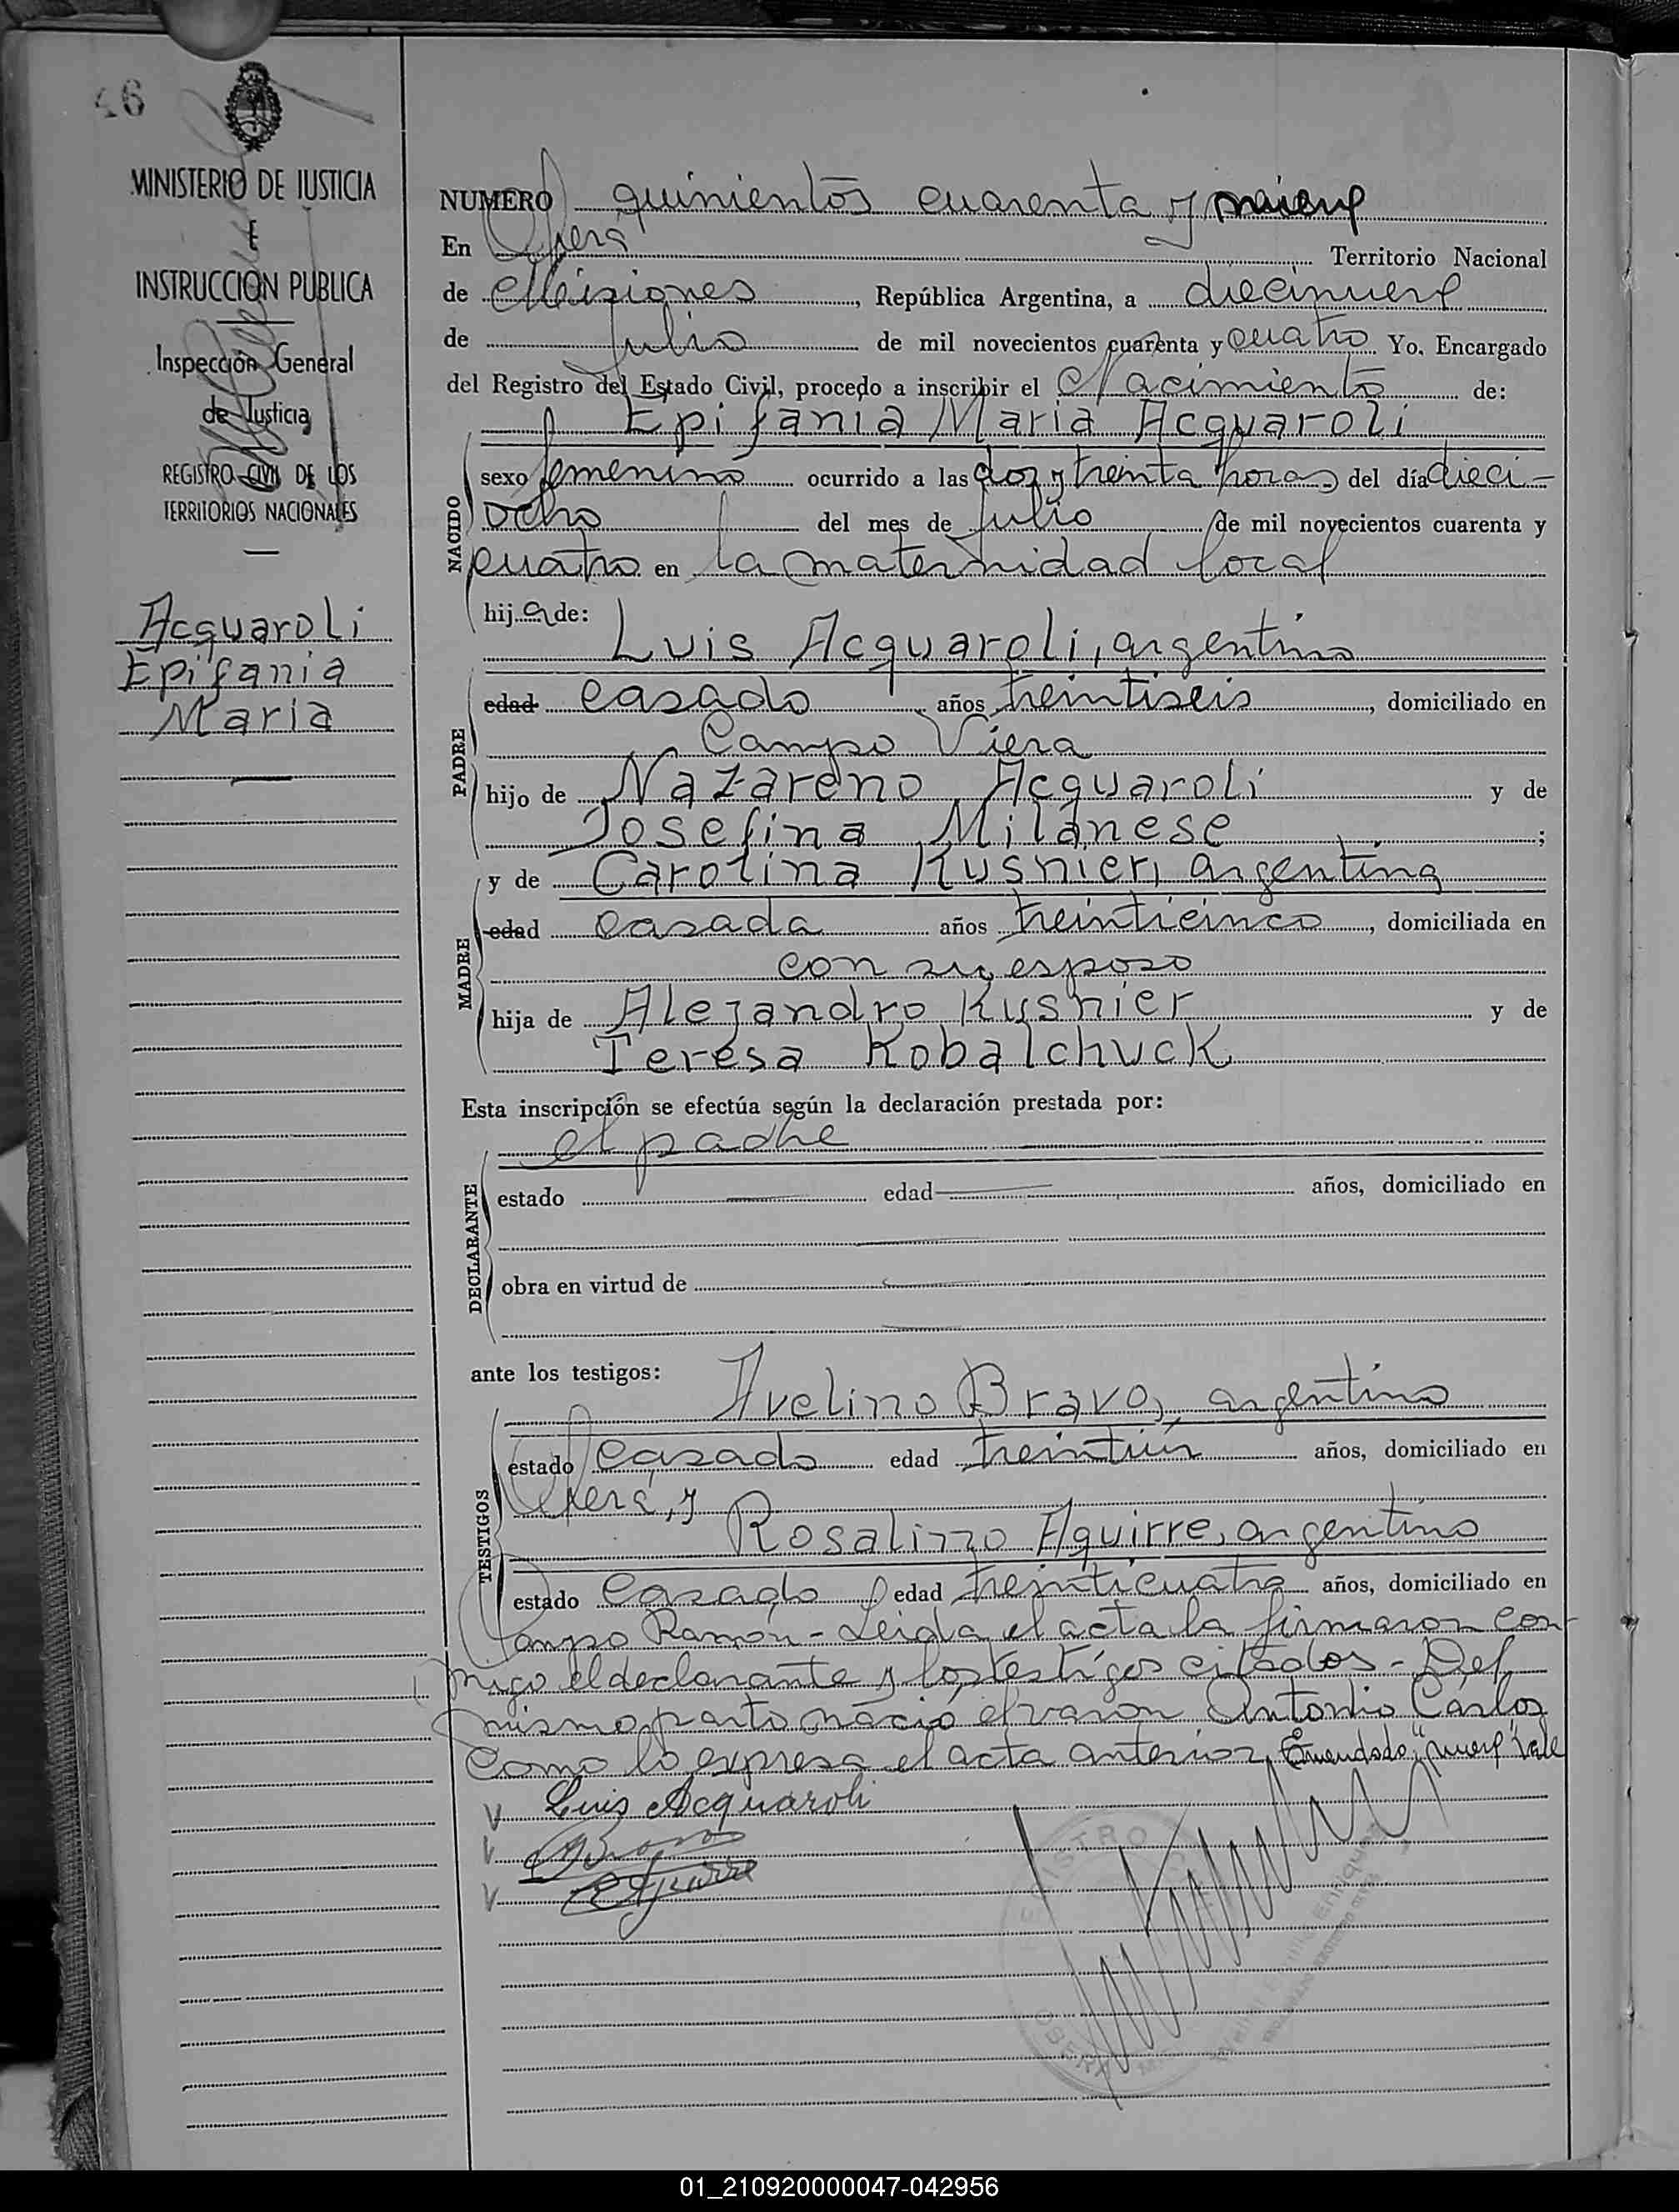 46
MINISTERIO DE JUSTICIA
E
INSTRUCCION PUBLICA
Inspección General
de Justicia
REGISTRO CIVIL DE LOS
TERRITORIOS NACIONALES
Acquaroli
Epifania
Maria
NUMERO quinientos cuarenta y nueve
En Oberá Territorio Nacional
de Misiones, República Argentina, a diecinueve
de Julio de mil novecientos cuarenta y cuatro Yo, Encargado
del Registro del Estado Civil, procedo a inscribir el Nacimiento de:
Epifania Maria Acquaroli
NACIDO
sexo femenino ocurrido a las dos y treinta horas del día dieci-
ocho del mes de julio de mil novecientos cuarenta y
cuatro en la maternidad local
hija de:
Luis Acquaroli, argentino
PADRE
edad casado años treintiseis, domiciliado en
Campo Viera
hijo de Nazareno Acquaroli y de
Josefina Milanese;
y de Carolina Kusnier, argentina
MADRE
edad casada años treinticinco, domiciliada en
con su esposo
hija de Alejandro Kusnier y de
Teresa Kobalchuck
Esta inscripción se efectúa según la declaración prestada por:
el padre
DECLARANTE
estado edad años, domiciliado en
obra en virtud de
ante los testigos:
Avelino Bravo, argentino
TESTIGOS
estado casado edad treintiún años, domiciliado en
Oberá, y
Rosalino Aguirre, argentino
estado casado edad treinticuatro años, domiciliado en
Campo Ramón - Leida el acta la firmaron con-
migo el declarante y los testigos citados - Del
mismo parto nació el varón Antonio Cárlos
como lo expresa el acta anterior. Enmendado: "nueve" Vale
V Luis Acquaroli
V
V Aguirre
REGISTRO
OBERÁ
Enrique
01_210920000047-042956